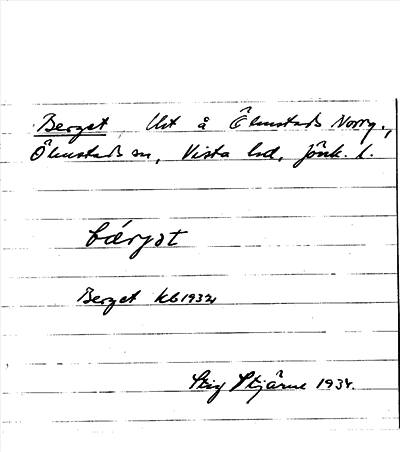 Berget, Ut å Ölmstads Norrg.,
Ölmstads sn, Vista hd, Jönk. l.
bæ̀rjət
Berget kb 1932
Stig Stjärne 1934.